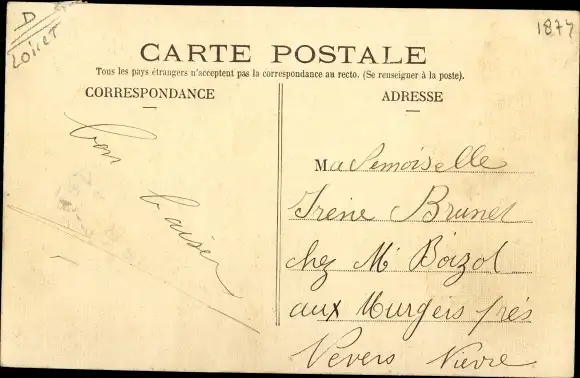 D
Loiret
1874
CARTE POSTALE
Tous les pays étrangers n'acceptent pas la correspondance au recto. (Se renseigner à la poste).
CORRESPONDANCE
ADRESSE
bon
baiser
Mademoiselle
Irène Brunet
chez Mr Boizot
aux Murgers près
Nevers Nièvre